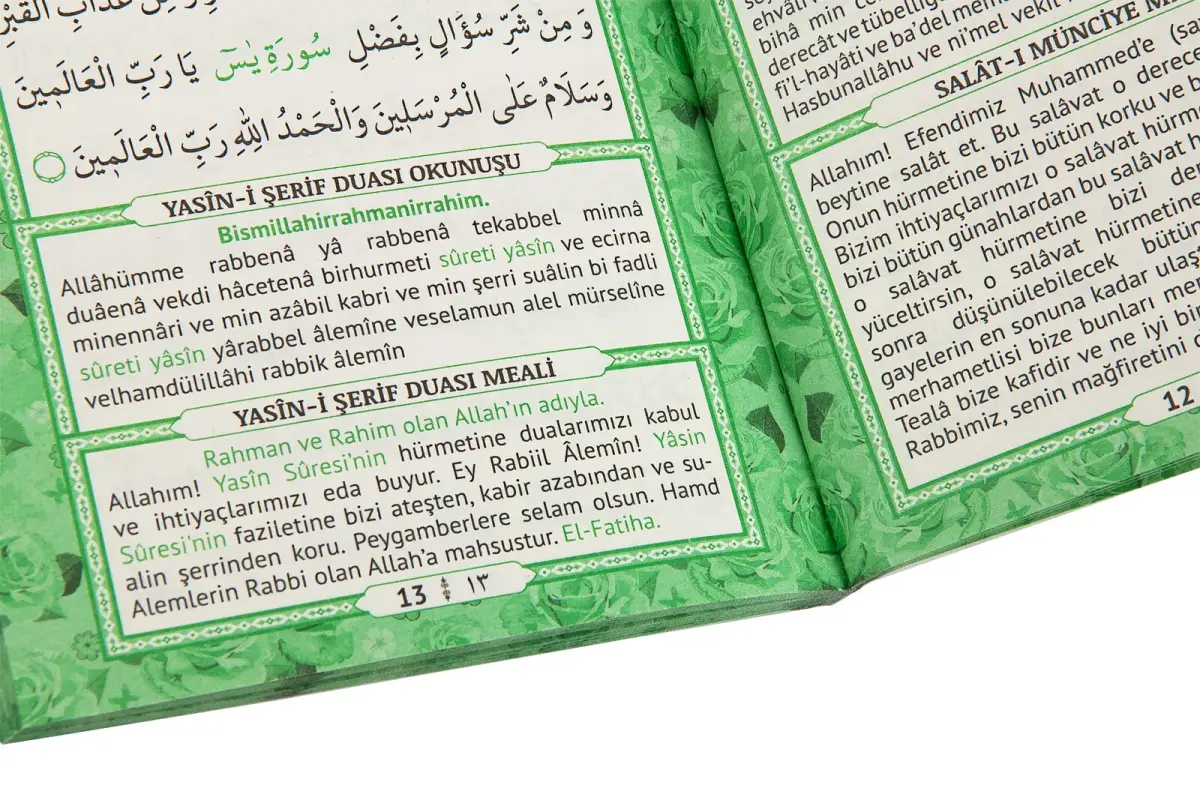 وَ مِنْ شَرِّ سُؤَالٍ بِفَضْلِ سُورَةِ يٰسٓ يَا رَبِّ الْعَالَمِينَ
وَسَلَامٌ عَلَى الْمُرْسَلِينَ وَالْحَمْدُ اللهِ رَبِّ الْعَالَمِينَ
YASÎN-İ ŞERİF DUASI OKUNUŞU
Bismillahirrahmanirrahim.
Allâhümme rabbenâ yâ rabbenâ tekabbel minnâ
duâenâ vekdi hâcetenâ birhurmeti sûreti yâsîn ve ecirna
minennâri ve min azâbil kabri ve min şerri suâlin bi fadli
sûreti yâsîn yârabbel âlemîne veselamun alel mürselîne
velhamdülillâhi rabbik âlemîn
YASÎN-İ ŞERİF DUASI MEALİ
Rahman ve Rahim olan Allah'ın adıyla.
Allahım! Yasîn Sûresi'nin hürmetine dualarımızı kabul
ve ihtiyaçlarımızı eda buyur. Ey Rabiil Âlemîn! Yâsin
Sûresi'nin faziletine bizi ateşten, kabir azabından ve su-
alin şerrinden koru. Peygamberlere selam olsun. Hamd
Alemlerin Rabbi olan Allah'a mahsustur. El-Fatiha.
13 ١٣
bihâ min
derecât ve tübelliğ
fi'l-hayâti ve ba'del
Hasbunallâhu ve ni'mel vekil
SALÂT-I MÜNCİYE
Allahım! Efendimiz Muhammed'e
beytine salât et. Bu salâvat o derece
Onun hürmetine bizi bütün korku ve
Bizim ihtiyaçlarımızı o salâvat
bizi bütün günahlardan bu salâvat
o salâvat hürmetine bizi
yüceltirsin, o salâvat hürmetine
sonra düşünülebilecek bütün
gayelerin en sonuna kadar
merhametlisi bize bunları
Tealâ bize kafidir ve ne iyi
Rabbimiz, senin mağfiretini
12